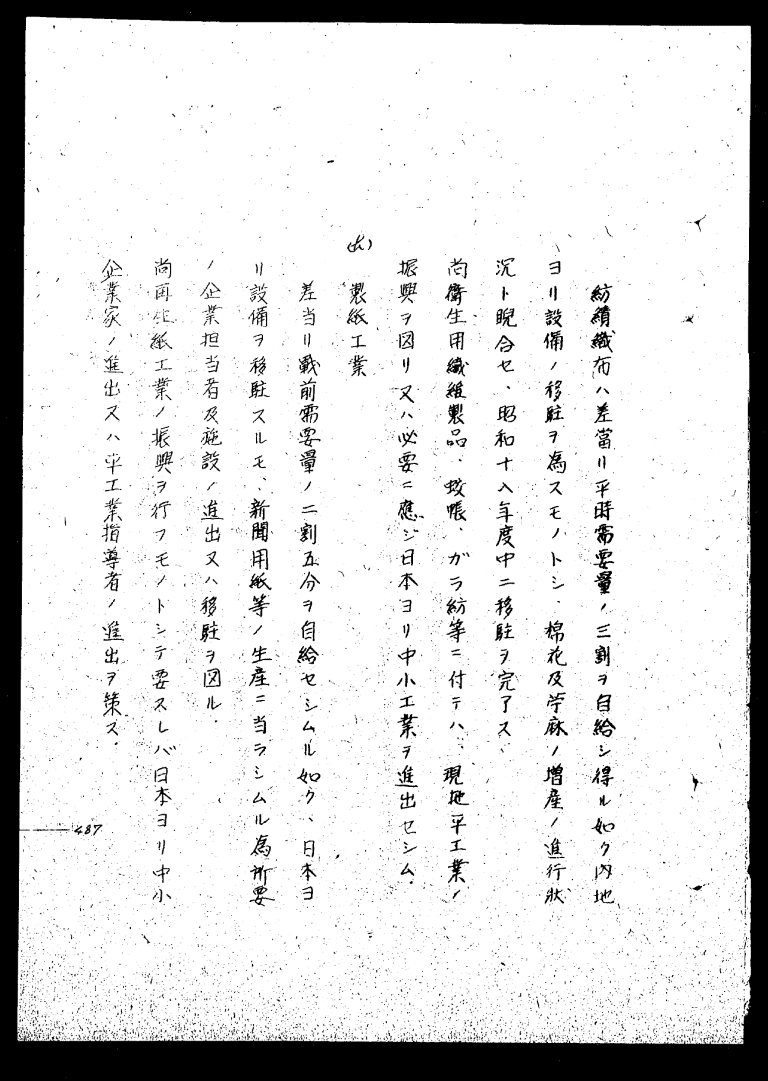 紡績織布ハ差當リ平時需要量ノ三割ヲ自給シ得ル如ク内地
ヨリ設備ノ移駐ヲ為スモノトシ、棉花及苧麻ノ増産ノ進行狀
況ト睨合セ、昭和十八年度中ニ移駐ヲ完了ス、
尚衛生用纖維製品、蚊帳、ガラ紡等ニ付テハ、現地手工業ノ
振興ヲ図リ又ハ必要ニ應ジ日本ヨリ中小工業ヲ進出セシム.
製紙工業
差当リ戰前需要量ノ二割五分ヲ自給セシムル如ク、日本ヨ
リ設備ヲ移駐スルモ、新聞用紙等ノ生産ニ当ラシムル為所要
ノ企業担当者及施設ノ進出又ハ移駐ヲ図ル.
尚再生紙工業ノ振興ヲ行フモノトシテ要スレバ日本ヨリ中小
企業家ノ進出又ハ手工業指導者ノ進出ヲ策ス.
487